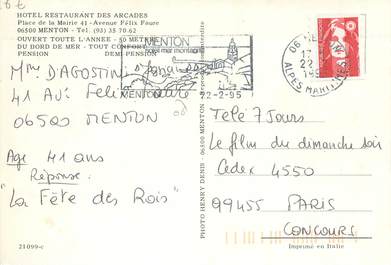 6€
HOTEL RESTAURANT DES ARCADES
Place de la Mairie 41 - Avenue Félix Faure
06500 MENTON - Tél. (93) 35 70 62
OUVERT TOUTE L'ANNEE - 50 METRES
DU BORD DE MER - TOUT CONFORT
PENSION DEMI PENSION
MENTON
MENTON
22-2-95
06 MENTON
22
ALPES MARITIMES
Mme D'AGOSTIN
41 Av: Felix Faure
06500 MENTON
Age 41 ans
Réponse:
"La Fête des Rois"
21099-c
PHOTO HENRY DENIS - 06500 MENTON
interdite
Télé 7 Jours
Le film du dimanche soir
Cedex 4550
99455 PARIS
CONCOURS
Imprimé en Italie